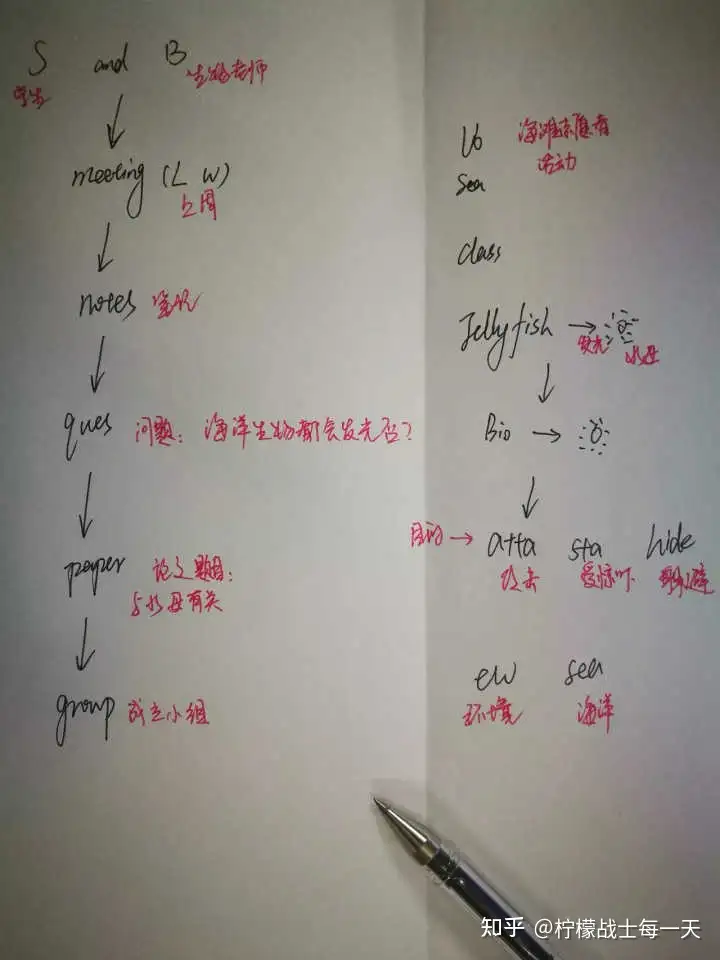 S and B 生物老师
学生
meeting (L W)
上周
notes 笔记
ques 问题: 海洋生物都会发光否?
paper 论文题目:
与水母有关
group 成立小组
Vo 海滩志愿者
活动
Sea
class
Jellyfish →
发光 水母
Bio →
目的 → atta sta hide
攻击 受惊吓 躲避
ew sea
环境 海洋
知乎 @柠檬战士每一天